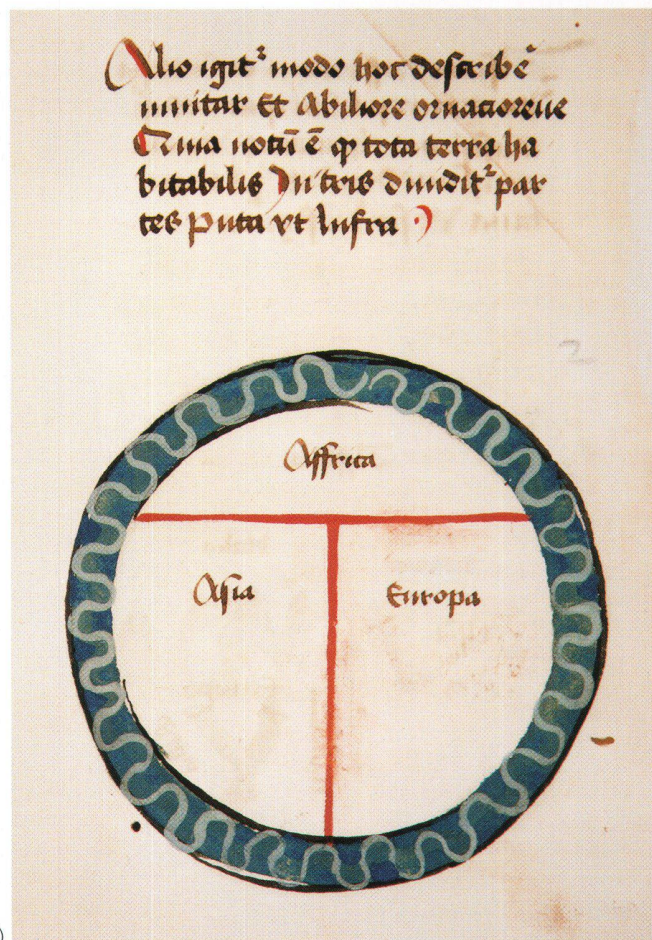 Alio igit᷑ modo hoc describe᷑
mutar Et Abiliore ornatioreue
Quia notū ē ꝙ tota terra ha
bitabilis In tris diuidit᷑ par
tes Puta vt Infra
2
Affrica
Asia Europa